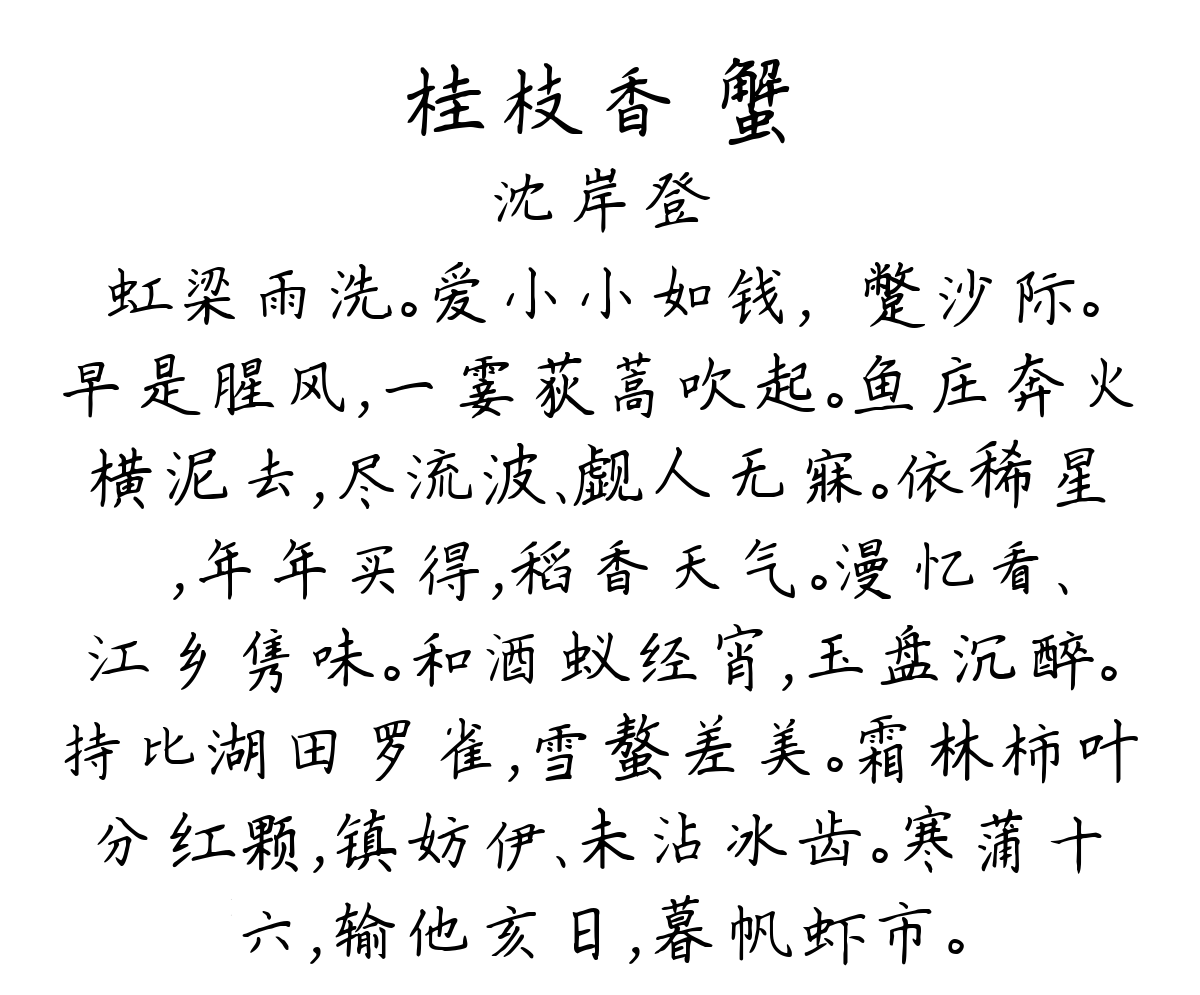 桂枝香 蟹
沈岸登
虹梁雨洗。爱小小如钱，蹩沙际。
早是腥风，一霎荻蒿吹起。鱼庄奔火
横泥去，尽流波、觑人无寐。依稀星
，年年买得，稻香天气。漫忆看、
江乡隽味。和酒蚁经宵，玉盘沉醉。
持比湖田罗雀，雪螯差美。霜林柿叶
分红颗，镇妨伊、未沾冰齿。寒蒲十
六，输他亥日，暮帆虾市。